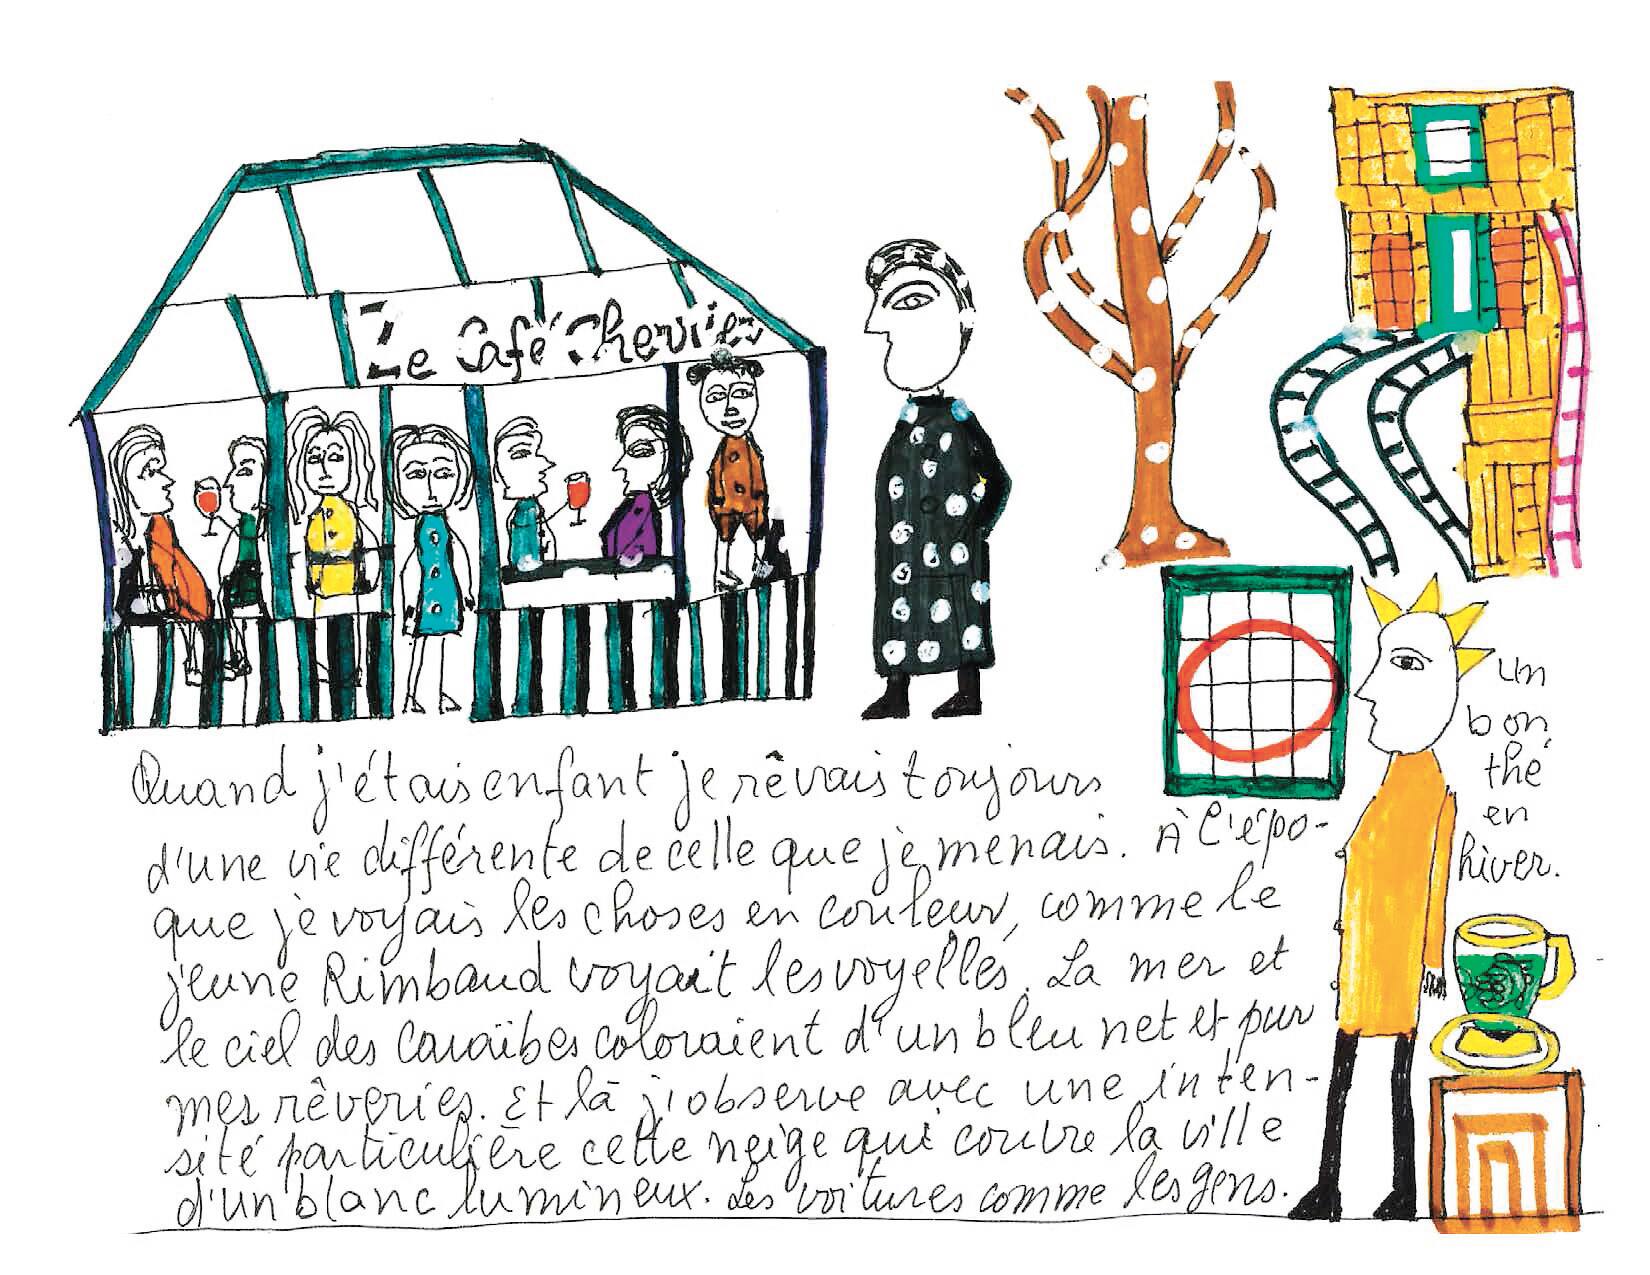 Le Café Cherrier
Quand j'étais enfant je rêvais toujours
d'une vie différente de celle que je menais. À l'épo-
que je voyais les choses en couleur, comme le
jeune Rimbaud voyait les voyelles. La mer et
le ciel des Caraïbes coloraient d'un bleu net et pur
mes rêveries. Et là j'observe avec une inten-
sité particulière cette neige qui couvre la ville
d'un blanc lumineux. Les voitures comme les gens.
un
bon
thé
en
hiver.